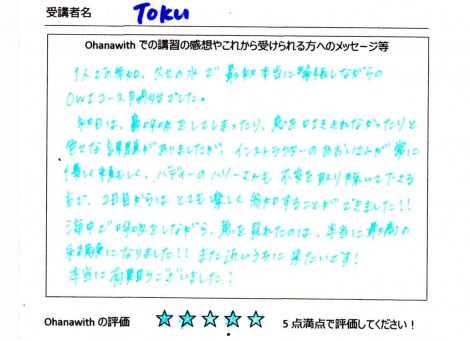 受講者名 TOKU
Ohanawith での講習の感想やこれから受けられる方へのメッセージ等
1人での参加、久々の水で最初本当に緊張しながらの
OWDコース開始でした。
初日は、鼻呼吸をしてしまったり、息を吐ききれなかったりと
色々な課題がありましたが、インストラクターのあおいさんが常に
優しく頼もしく、バディーのハリーさんも不安を取り除いて下さる
方で、2日目からはとても楽しく参加することができました!!
海中で呼吸をしながら、魚を見れたのは、本当に最高の
経験になりました!! また近いうちに来たいです!
本当に有難うございました!
Ohanawith の評価 ☆☆☆☆☆ 5 点満点で評価してください!